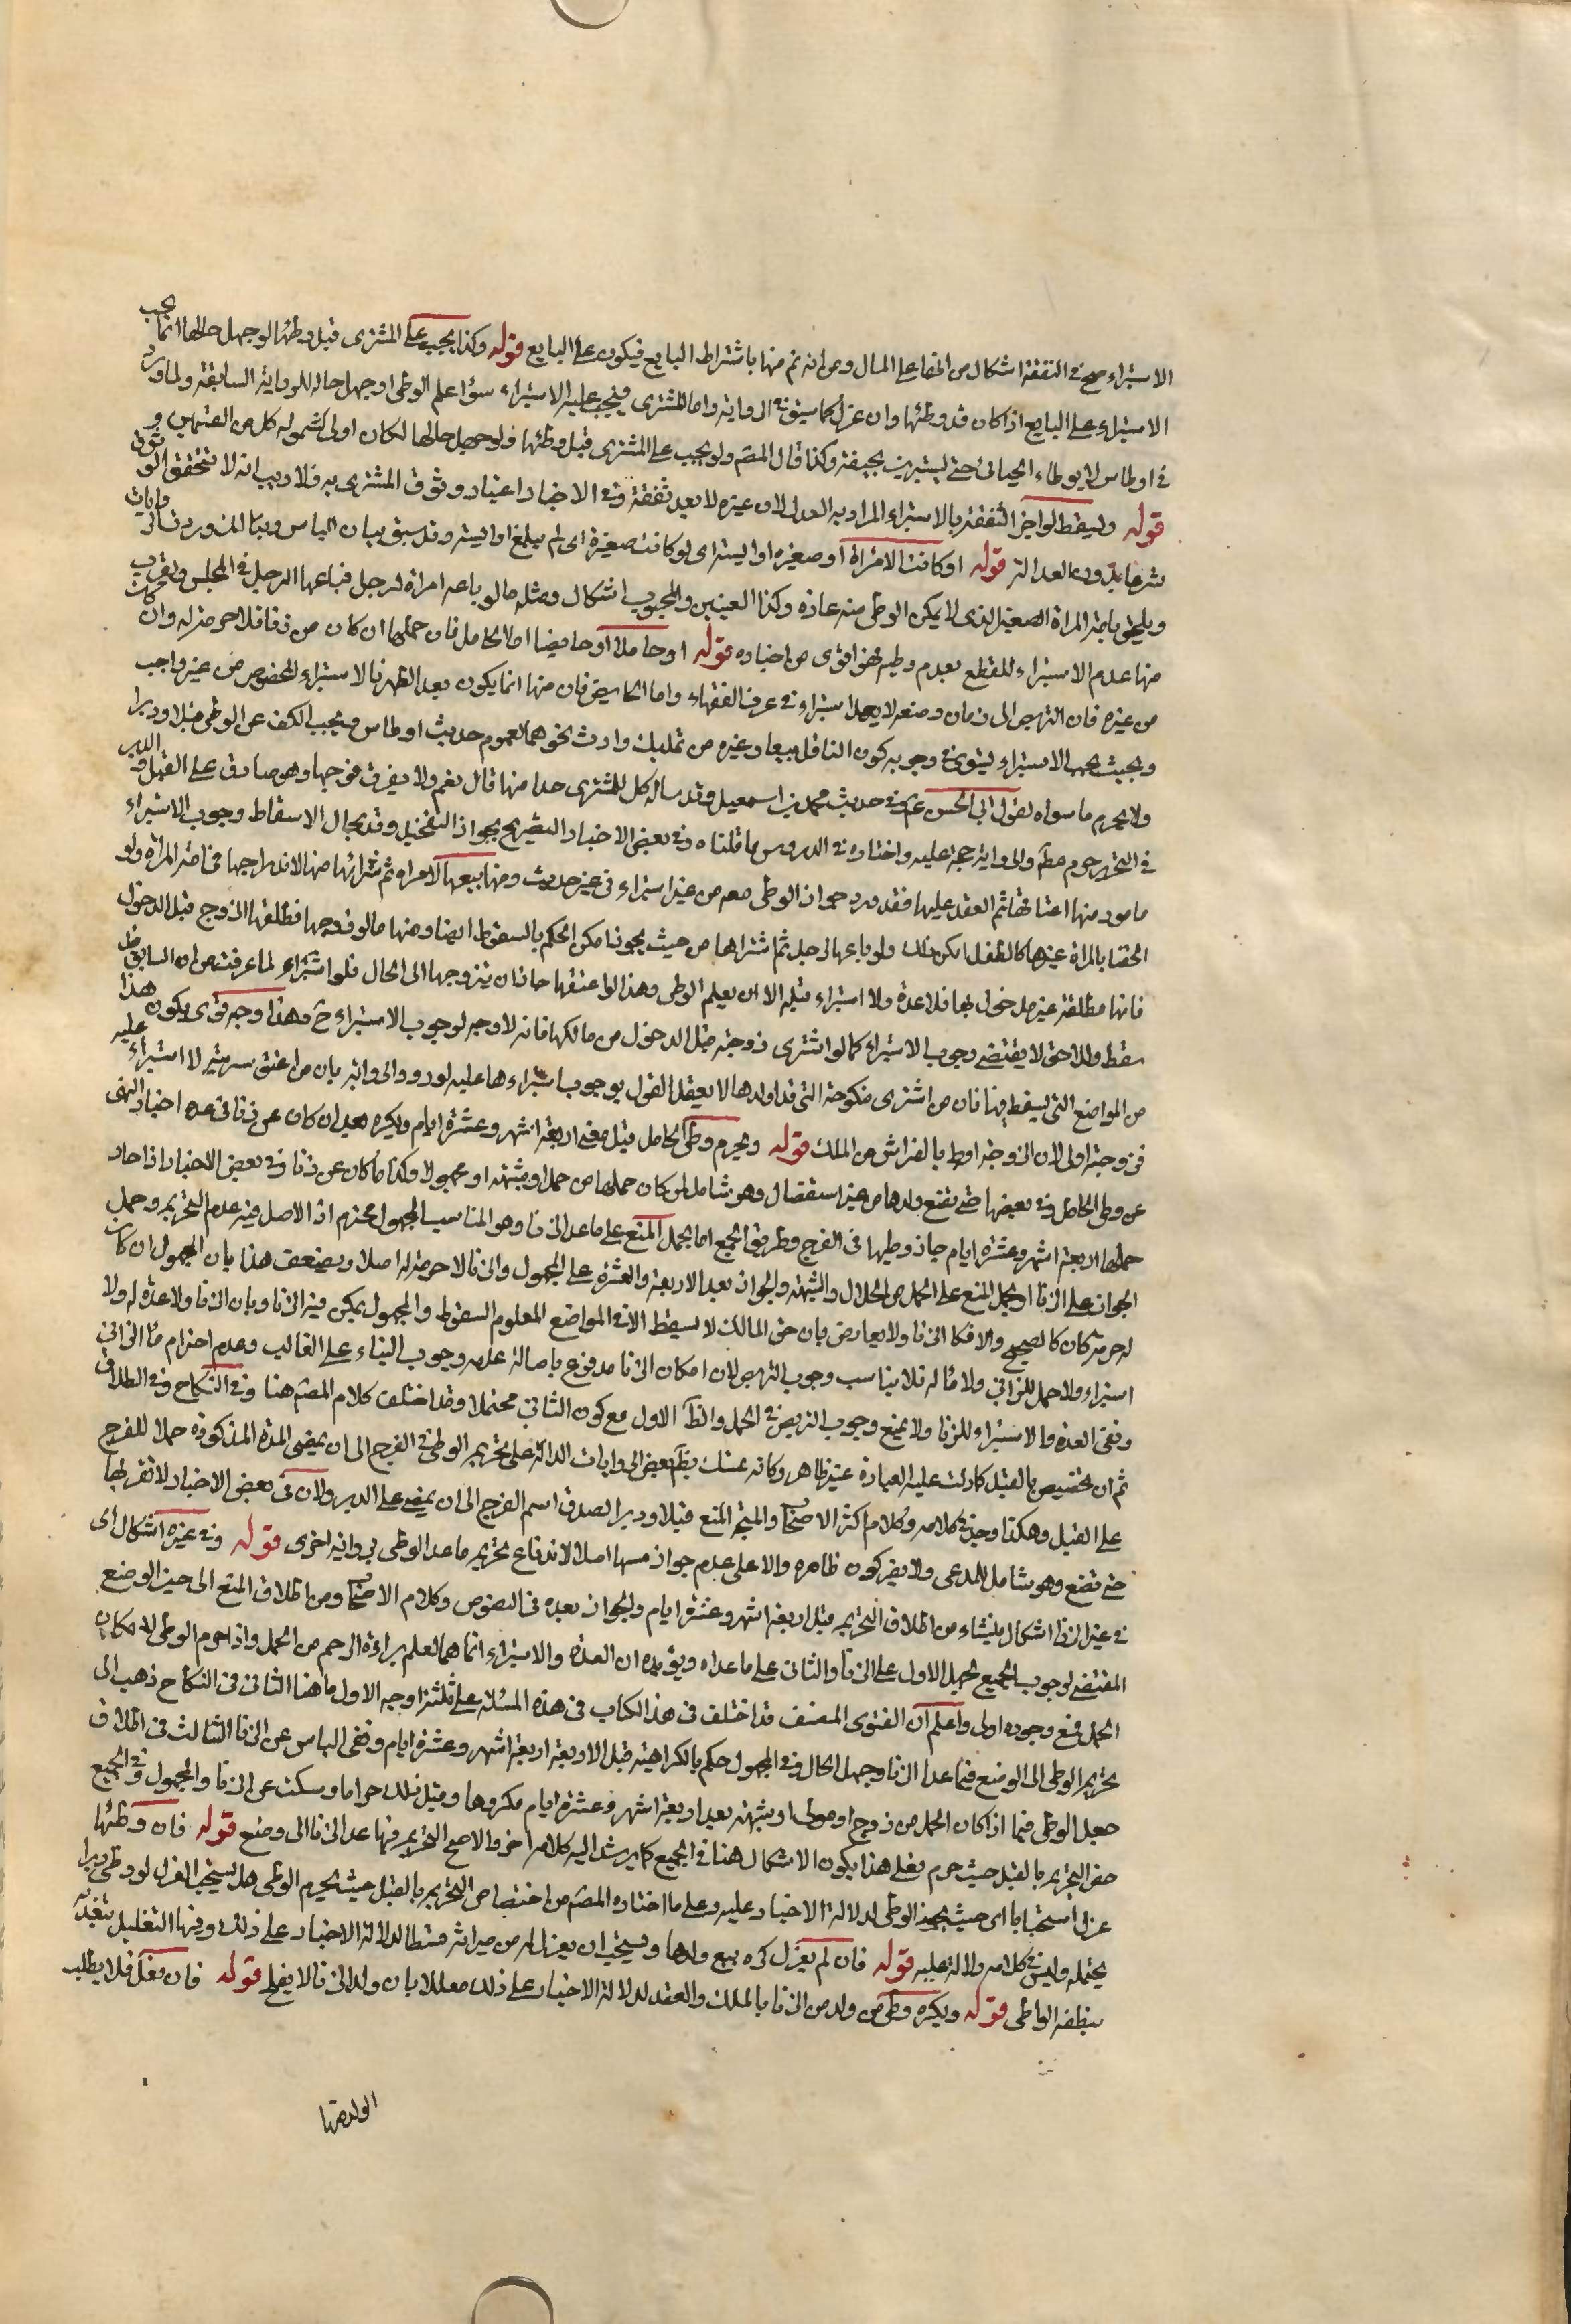 الاستبراء صح في النفقة اشكال من انها على المال ومن انه تم منها باشتراط البايع فيكون على البايع قوله وكذا يجب على المشتري قبل وطئها لو جهل حالها انما يجب
الاستبراء على البايع اذا كان قد وطئها وان عزل كما سبق في الرواية واما المشتري فيجب عليه الاستبراء سواء علم الوطى او جهل حاله للرواية السابقة ولما ورد
في اوطاس لا يوطاء الحيالى حتى يستبرين بحيضة وكذا قال المصّ ولو يجب على المشتري قبل وطئها ولو جهل حالها لكان اولى لشموله كل من القسمين
قوله ويسقط لو اخبر الثقة بالاستبراء المراد به العدل لان غيره لا يعد ثقة وفي الاخبار اعتبار وثوق المشتري به فلا ريب انه لا تتحقق الوثوق
شرعا بدون العدالة قوله او كانت لامراة او صغيرة او ايسة اى لو كانت صغيرة اى لم يبلغ او ايسة وقد سبق بيان الياس
ويلحق بامة المراة الصغير الذي لا يمكن الوطى منه عادة وكذا العينين والمجبوب اشكال ومثله ما لو باعه امراة لرجل فباعها الرجل في المجلس
منها عدم الاستبراء للقطع بعدم وطيه فهو اقوى من اخباره قوله او حاملا او حايضا اما الحامل فان حملها ان كان من زنا فلا حرمة له وان كان
من غيره فان التربص الى زمان وضعه لا يعد استبراء في عرف الفقهاء واما الحايض فان منها انما يكون بعد الطهر فالاستبراء المخصوص من غير واجب
وبحيث يجب الاستبراء يستوى في وجوبه كون الناقل بيعا وغيره من تمليك وارث نحوهما لعموم حديث اوطاس ويجب الكف عن الوطى قبلا ودبرا
ولا يحرم ما سواه لقول ابي الحسن ع في حديث محمد بن اسمعيل وقد ساله كل للمشتري حدا منها قال نعم ولا يقرب فرجها وهو صادق على القبل والدبر
في التحرير حرم مطم والرواية حجة عليه واختاره في الدروس ما قلناه وفي بعض الاخبار التصريح بجواز التفخيذ وقد يحال الاسقاط وجوب الاستبراء
مامور منها اعتاقها ثم العقد عليها فقد ورد جواز الوطى معه من غير استبراء في غير حديث ومنها بيعها لامراة ثم شرائها منها لاندراجها في امة المراة ولو
الحقنا بالمراة غيرها كالطفل امكن ذلك ولو باعها لرجل ثم اشتراها من حيث يجوز امكن الحكم بالسقوط ايضا ومنها ما لو زوجها فطلقها الزوج قبل الدخول
فانها مطلقة غير مدخول بها فلا عدة ولا استبراء قبله الا ان يعلم الوطى وهذا لو اعتقها جاز ان يتزوجها الى الحال فلو اشتراء لما عرفت من ان السابق قد
سقط واللاحق لا يقتضى وجوب الاستبراء كما لو اشترى زوجته قبل الدخول من مالكها فانه لا وجه لوجوب الاستبراء ح وهذا وجه قوى يكون هذا
من المواضع التي يسقط فيها فان من اشترى منكوحة التي قد اولدها لا يعقل القول بوجوب استبراءها عليه لورود الرواية بان من اعتق سريته لا استبراء عليه
فزوجته اولى لان الزوجة اربط بالفراش من الملك قوله ويحرم وطى الحامل قبل مضى اربعة اشهر وعشرة ايام ويكره بعد ان كان عن زنا في عدة اخبار النهى
عن وطى الحامل وفي بعضها حتى تضع ولدها من غير استفصال وهو شامل لمن كان حملها من حمل او شبهة او مجهول وكذا ما كان عن زنا وفي بعض الاخبار اذا جاز
حملها اربعة اشهر وعشرة ايام جاز وطيها في الفرج وطريق الجمع اما بحمل المنع على ما عدا الزنا وهو المناسب المجهول محترم اذ الاصل فيه عدم التحريم وحمل
الجواز على الزنا او يحمل المنع على الحمل من الحلال والشبهة والجواز بعد الاربعة والعشرة على المجهول والزنا لا حرمة له اصلا ويضعف هذا بان المجهول ان كان
له حرمة كان كالصحيح والا فكالزنا ولا يعارض بان حق المالك لا يسقط الا في المواضع المعلوم السقوط والمجهول يمكن فيه الزنا وبان الزنا ولا عدة له ولا
استبراء ولا حمل للزاني ولا ماله فلا يناسب وجوب التربص لان امكان الزنا مدفوع باصالة عدمه وجوب البناء على الغالب وعدم احترام ماء الزاني
ونفى العدة والاستبراء للزنا ولا يمنع وجوب التربص في الحمل والظ الاول مع كون الثاني محتملا وقد اختلف كلام المصّ هنا وفي النكاح وفي الطلاق
ثم ان تخصيص القبل كما دلت عليه العبارة غير ظاهر وكانه تمسك بظ بعض الروايات الدالة على تحريم الوطى في الفرج الى ان يمضى المدة المذكورة حملا للفرج
على القبل وهكذا وجد في كلامه وكلام اكثر الاصحاب والمتجه المنع قبلا ودبرا لصدق اسم الفرج الى ان يمضى على الدبر ولان في بعض الاخبار لا تقربها
حتى تضع وهو شامل للمدعى ولا يضر كون ظاهره والا على عدم جواز مسها اصلا لاندفاع تحريم ما عدا الوطى برواية اخرى قوله وفي غيره اشكال اى
في غير الزنا اشكال ينشاء من اطلاق التحريم قبل اربعة اشهر وعشرة ايام والجواز بعده في النصوص وكلام الاصحاب ومن اطلاق المنع الى حين الوضع
المقتضى لوجوب الجمع بحمل الاول على الزنا والثاني على ما عداه ويؤيده ان العدة والاستبراء انما هما لعلم براءة الرحم من الحمل واذا حرم الوطى لامكان
الحمل فمع وجوده اولى واعلم ان الفتوى المصنف قد اختلف في هذا الكتاب في هذه المسئلة على ثلثة اوجه الاول ما هنا الثاني في النكاح ذهب الى
تحريم الوطى الى الوضع فيما عدا الزنا وجهل الحال وفي المجهول حكم بالكراهية قبل الاربعة اربعة اشهر وعشرة ايام ونفى الباس عن الزنا الثالث في اطلاق
جعل الوطى فيما اذا كان الحمل من زوج او مولى او شبهة بعد اربعة اشهر وعشرة ايام مكروها وقبل ذلك حراما وسكت عن الزنا والمجهول وفي الجميع
حض التحريم بالقبل حيث حرم فعلى هذا يكون الاشكال هنا في الجميع كما يرشد اليه كلامه اخر والاصح التحريم فيما عدا الزنا الى وضع قوله فان وطئها
عزل استحبابا اى حيث يجوز الوطى لدلالة الاخبار عليه وعلى ما اختاره المصّ من اختصاص التحريم بالقبل حيث يحرم الوطى هل يستحب العزل لو وطى دبرا
يحتمله وليس في كلامه دلالة عليه قوله فان لم يعزل كره بيع ولدها ويستحب ان يعزل له من ميراثه قسطا لدلالة الاخبار على ذلك وفيها التعليل بتغذيه
بنطفة الواطى قوله ويكره وطى من ولد من الزنا بالملك والعقد لدلالة الاخبار على ذلك معللا بان ولد الزنا لا يفلح قوله فان فعل فلا يطلب
الولد منها